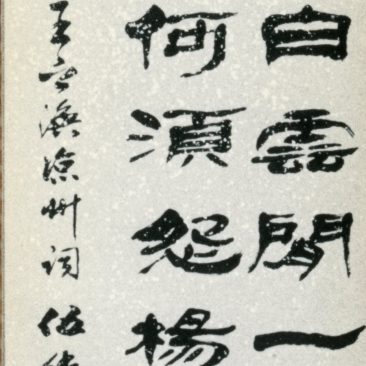 白雲間一
何須怨楊
王之渙涼州詞 伍